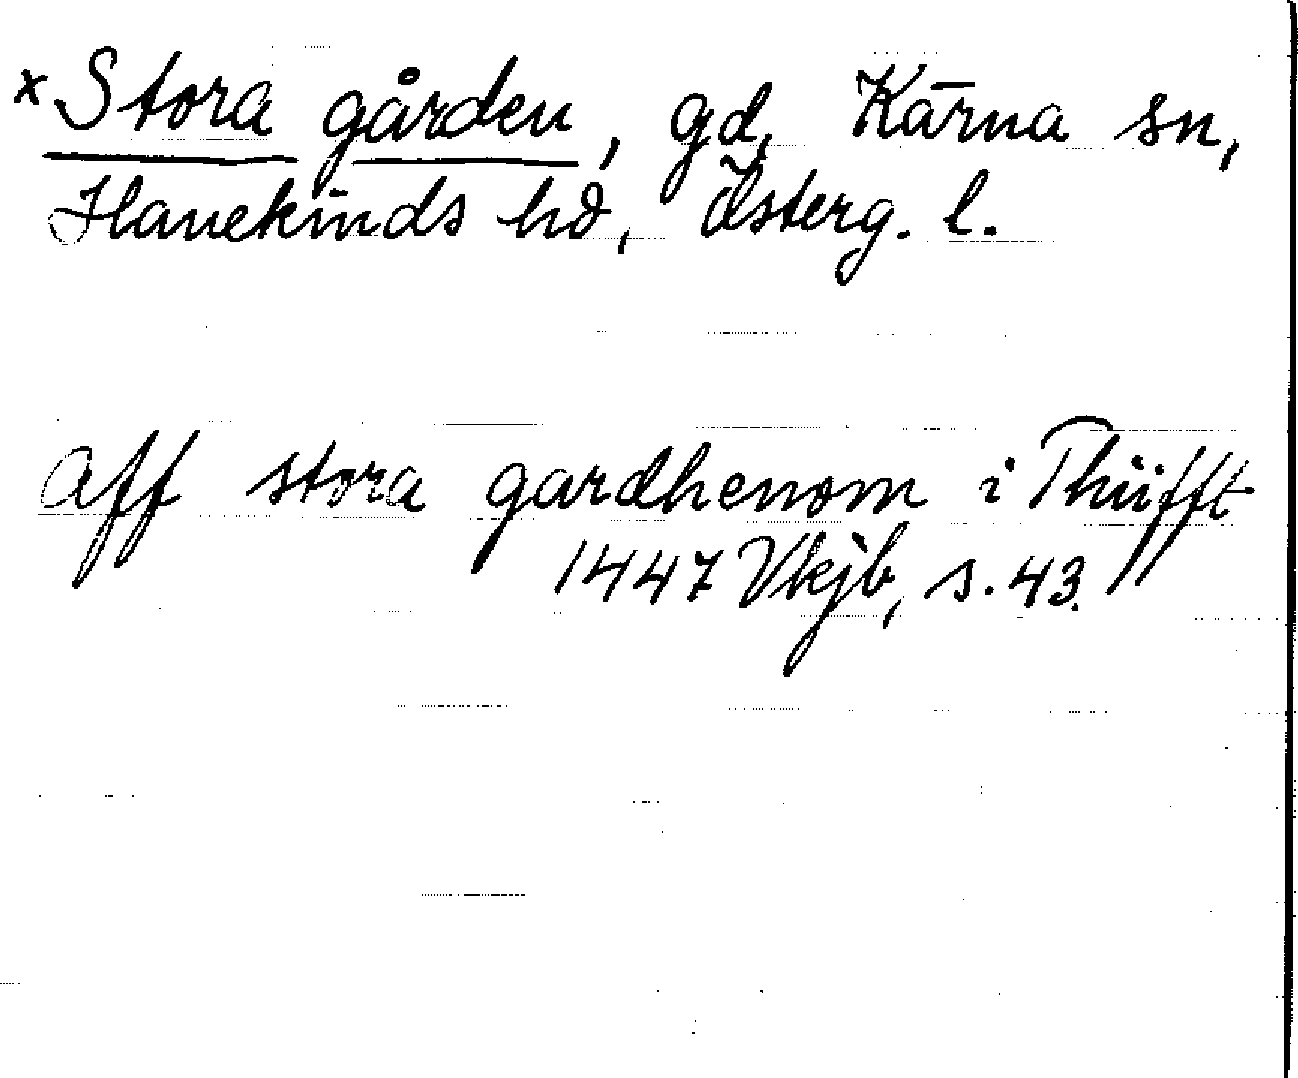 x Stora gården, gd, Kärna sn,
Hanekinds hd, Österg. l.
aff stora gardhenom i Thüfft
1447 Vkjb, s. 43.